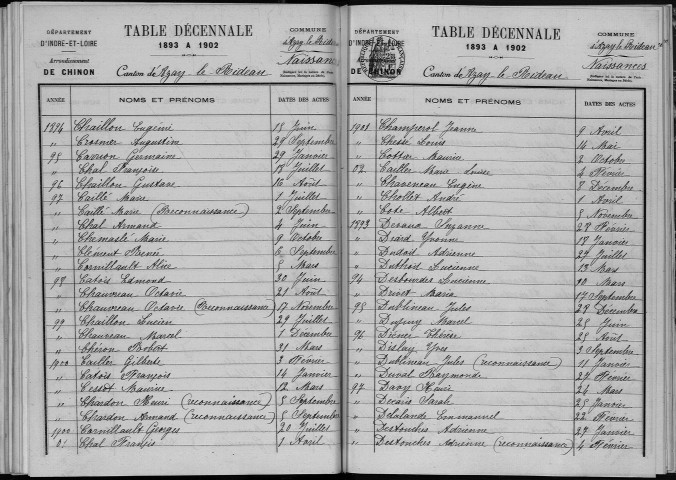 DÉPARTEMENT
D'INDRE-ET-LOIRE
Arrondissement
DE CHINON
TABLE DÉCENNALE
1893 A 1902
Canton d'Azay-le-Rideau
COMMUNE
d'Azay-le-Rideau
Naissances
ANNÉE NOMS ET PRÉNOMS DATES DES ACTES
1894 Chaillou Eugénie 18 Juin
" Crosnier Augustin 29 Septembre
95 Carron Germain 29 Janvier
" Chal Françoise 18 Juillet
96 Chaillou Gustave 10 Août
97 Caillé Marie 1 Juillet
" Caillé Marie (Reconnaissance) 2 Septembre
" Chal Armand 4 Juin
" Chemaslé Marie 9 Octobre
" Clément Renée 6 Septembre
" Cornillault Alice 5 Mars
98 Catois Edmond 30 Juin
" Chauveau Octavie 21 Août
" Chauveau Octavie (Reconnaissance) 17 Novembre
99 Chaillou Lucien 29 Juillet
" Chauveau Marcel 1 Décembre
" Chéron Robert 31 Mars
1900 Cailler Gilberte 3 Février
" Catois François 14 Janvier
" Cessot Maurice 12 Mars
" Chardon Henri (reconnaissance) 8 Septembre
" Chardon Armand (reconnaissance) 8 Septembre
1900 Cornillault Georges 20 Juillet
01 Chal Francis 1 Avril
DÉPARTEMENT
D'INDRE-ET-LOIRE
DE CHINON
TABLE DÉCENNALE
1893 A 1902
Canton d'Azay-le-Rideau
COMMUNE
d'Azay-le-Rideau
Naissances
ANNÉE NOMS ET PRÉNOMS DATES DES ACTES
1901 Champerol Jeanne 9 Avril
" Chesse Louis 14 Mai
" Cottar Maurice 2 Octobre
02 Cailler Marie Louise 4 Février
" Chaveneau Eugène 8 Décembre
" Chollet André 1 Avril
" Cote Albert 5 Novembre
1893 Suzanne 28 Février
" Diard Yvonne 17 Janvier
" Dudoit Adrienne 29 Juillet
" Dubois Lucienne 13 Mars
94 Desbourdes Lucienne 10 Mars
" Druet Maria 17 Septembre
95 Dublineau Jules 28 Décembre
" Dupuy Marcel 25 Juin
96 25 Août
" Deslay Yves 3 Septembre
" Dublineau Jules (reconnaissance) 11 Janvier
" Duval Raymonde 29 Février
97 Davoy Henri 24 Mars
" Decaris Sarah 25 Janvier
" Delalande Emmanuel 22 Février
" Destouches Adrienne 27 Janvier
" Destouches Adrienne (reconnaissance) 4 Février